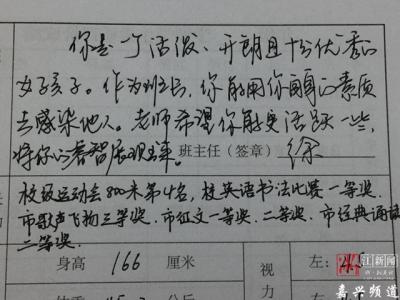 你是一个活泼、开朗且十分优秀的
女孩子。作为班长，你能用你的素质
去感染他人。老师希望你能更活跃一些，
将你的睿智展现出来。班主任（签章）徐
校级运动会800米第4名，校英语书法比赛一等奖.
市歌声飞扬三等奖.市征文一等奖.二等奖.市经典诵读
二等奖.
身高 166 厘米 视力 左：4.5
江新闻
嘉兴频道